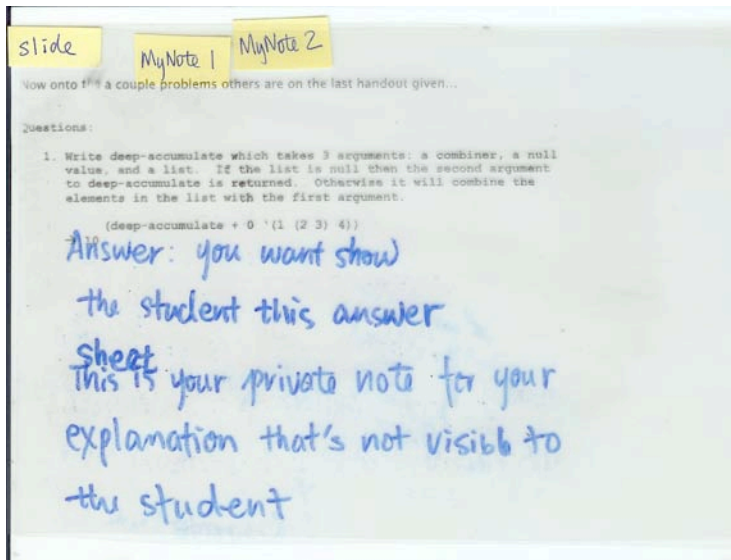 slide
MyNote 1
MyNote 2
Now onto a couple problems others are on the last handout given...
Questions:
1. Write deep-accumulate which takes 3 arguments: a combiner, a null
value, and a list. If the list is null then the second argument
to deep-accumulate is returned. Otherwise it will combine the
elements in the list with the first argument.
(deep-accumulate + 0 '(1 (2 3) 4))
10
Answer: you want show
the student this answer
sheet
This is your private note for your
explanation that's not visible to
the student